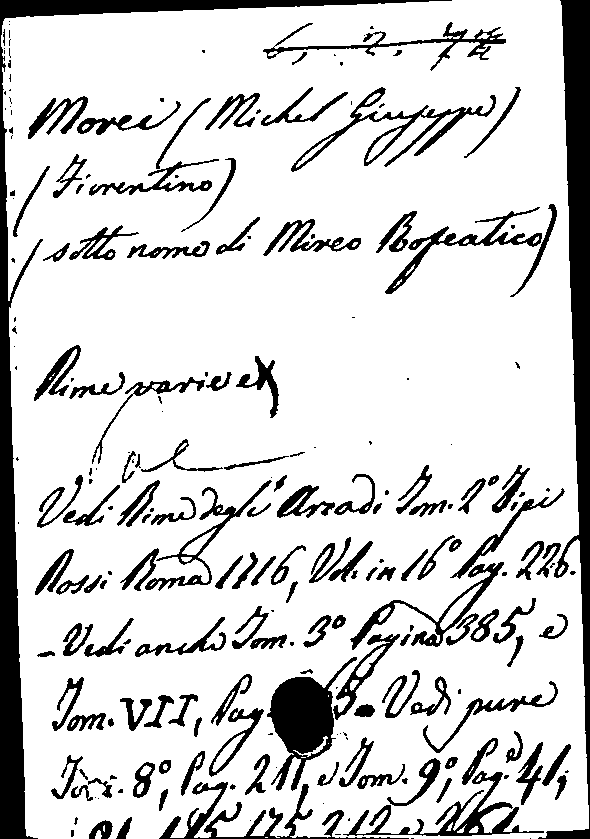 Morei (Michel Giuseppe)
(Fiorentino)
(sotto nome di Mireo Rofeatico)
Rime varie
Vedi Rime degli Arcadi Tom. 2° Tipi
Rossi Roma 1716, Vol. in 16° Pag. 226.
- Vedi anche Tom. 3° Pagina 385, e
Tom. VII, Pag. - Vedi pure
Tom. 8°, Pag. 211, e Tom. 9°, Pag. 41,
175, 212 e